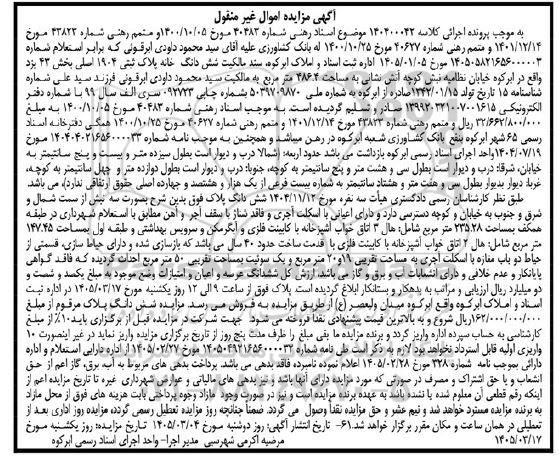 آگهی مزایده اموال غیر منقول
به موجب پرونده اجرائی کلاسه ۱۴۰۴۰۰۰۴۲ موضوع اسناد رهنی شماره ۴۰۴۸۳ مورخ ۱۴۰۰/۱۰/۰۵و متمم رهنی شماره ۴۳۸۲۳ مورخ
۱۴۰۱/۱۲/۱۴ و متمم رهنی شماره ۴۰۶۲۷ مورخ ۱۴۰۰/۱۰/۲۵ له بانک کشاورزی علیه آقای سید محمود داودی ابرقوئی که برابر استعلام شماره
۱۴۰۵۰۵۸۲۱۶۵۶۰۰۰۰۰۳ مورخ ۱۴۰۵/۰۱/۰۵ اداره ثبت اسناد و املاک ابرکوه، سند مالکیت شش دانگ خانه پلاک ثبتی ۱۹۰۴ اصلی بخش ۴۳ یزد
واقع در ابرکوه خیابان نظامیه نبش کوچه آتش نشانی به مساحت ۴۸۶.۴ متر مربع به مالکیت سید محمود داودی ابرقوئی فرزند سید علی شماره
شناسنامه ۱۵ تاریخ تولد ۱۳۴۲/۰۱/۱۵ صادره از ابرکوه به شماره ملی ۵۰۳۹۷۰۹۸۷۰ با شماره چاپی ۰۹۲۷۲۳ سری الف سال ۹۹ با شماره دفتر
الکترونیکی ۱۳۹۹۲۰۳۲۱۰۰۷۰۰۱۶۱۵ صادر و تسلیم گردیده است. به موجب اسناد رهنی شماره ۴۰۴۸۳ مورخ ۱۴۰۰/۱۰/۰۵ به مبلغ
۳۲/۶۶۲/۸۰۰/۰۰۰ ریال و متمم رهنی شماره ۴۳۸۲۳ مورخ ۱۴۰۱/۱۲/۱۴ و متمم رهنی شماره ۴۰۶۲۷ مورخ ۱۴۰۰/۱۰/۲۵ همگی دفترخانه اسناد
رسمی ۶۵ شهر ابرکوه بنفع بانک کشاورزی شعبه ابرکوه در رهن میباشد و همچنین به موجب نامه شماره ۱۴۰۴۰۴۰۲۱۶۵۶۰۰۰۰۳۳ مورخ
۱۴۰۴/۰۷/۱۹ واحد اجرای اسناد رسمی ابرکوه بازداشت می باشد حدود اربعه: شمالا: درب و دیوار است بطول سیزده متر و بیست و پنج سانتیمتر به
خیابان، شرقا: درب و دیوار است بطول سی و هشت متر و پنج سانتیمتر به کوچه، جنوبا: درب و دیوار است بطول دوازده متر و چهل سانتیمتر به کوچه،
غربا: دیوار بدیوار بطول سی و هفت متر و هشتاد سانتیمتر به شماره بیست فرعی از یک هزار و هشتصد و چهارده اصلی حقوق ارتفاقی ندارد) می باشد.
طبق نظر کارشناسان رسمی دادگستری هیأت سه نفره مورخ ۱۴۰۴/۱۱/۱۲ شش دانگ پلاک فوق بدین شرح بصورت سه نبش از سمت شمال و
شرق و جنوب به خیابان و کوچه دسترسی دارد و دارای اعیانی با اسکلت آجری و فاقد شناژ با سقف آجر و آهن مطابق با استعلام شهرداری در طبقه
همکف بمساحت ۲۳۵.۲۸ متر مربع شامل: هال ۳ اتاق خواب آشپزخانه با کابینت فلزی و آبگرمکن و سرویس بهداشتی و طبقه اول بمساحت ۱۴۷.۴۵
متر مربع شامل: هال ۲ اتاق خواب آشپزخانه با کابینت فلزی با قدمت ساخت حدود ۴۰ سال می باشد که بازسازی شده و دارای حیاط سازی، قسمتی از
حیاط دو باب مغازه با اسکلت آجری به مساحت تقریبی ۱۸و۲۰ متر مربع و یک سوئیت بمساحت تقریبی ۵۰ متر مربع احداث گردیده که فاقد گواهی
پایانکار و عدم خلافی و دارای انشعابات آب، برق و گاز می باشد؛ ارزش کل ششدانگ عرصه و اعیان و امتیازات وضع موجود به مبلغ یکصد و شصت و
دو میلیارد ریال ارزیابی و مراتب به بدهکار و بستانکار ابلاغ گردیده است. پلاک فوق از ساعت ۹ الی ۱۲ روز یکشنبه مورخ ۱۴۰۵/۰۳/۱۷ در اداره ثبت
اسناد و املاک ابرکوه واقع ابرکوه میدان ولیعصر (ع) از طریق مزایده به فروش می رسد. مزایده شش دانگ پلاک مرقوم از مبلغ
۱۶۲/۰۰۰/۰۰۰/۰۰۰ریال شروع و به بالاترین قیمت پیشنهادی نقدا فروخته می شود جهت شرکت در مزایده قبل از برگزاری باید۱۰٪ از مبلغ
کارشناسی به حساب سپرده اداره واریز گردد و برنده مزایده ما بقی مبلغ را ظرف مدت پنج روز از تاریخ برگزاری مزایده واریز نماید در غیر اینصورت ۱۰
واریزی اولیه قابل استرداد نخواهد بود.لازم به ذکر است طی نامه شماره ۱۴۰۵۰۴۹۲۱۶۵۶۰۰۰۰۳۲ مورخ ۱۴۰۵/۰۲/۲۷ اداره دارایی استعلام و اداره
دارائی بموجب نامه شماره ۳۲۸ مورخ ۱۴۰۵/۰۲/۲۸ اعلام نموده نامبرده فاقد بدهی می باشد. پرداخت بدهی های مربوط به آب، برق، گاز اعم از حق
انشعاب و یا حق اشتراک و مصرف در صورتی که مورد مزایده دارای آنها باشد و نیز بدهی های مالیاتی و عوارض شهرداری غیره تا تاریخ مزایده اعم از
اینکه رقم قطعی آن معلوم شده یا نشده باشد به عهده برنده مزایده است و نیز در صورت وجود مازاد وجوه پرداختی بابت هزینه های فوق از محل مازاد
به برنده مزایده مسترد خواهد شد و نیم عشر و حق مزایده نقدأ وصول می گردد. ضمنا چنانچه روز مزایده تعطیل رسمی گردد، مزایده روز اداری بعد از
تعطیلی در همان ساعت و مکان مقرر برگزار خواهد شد.۶۱- تاریخ انتشار آگهی: روز دوشنبه مورخ ۱۴۰۵/۰۳/۰۴ تاریخ مزایده: روز یکشنبه مورخ
۱۴۰۵/۰۳/۱۷ مرضیه اکرمی شهرسی مدیر اجرا- واحد اجرای اسناد رسمی ابرکوه